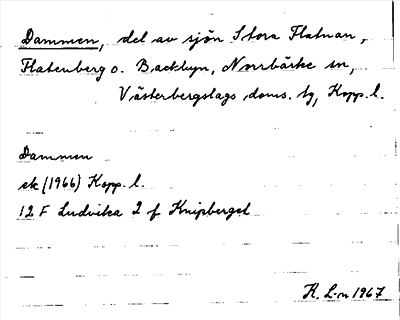 Dammen, del av sjön Stora Flatnan,
Flatenberg o. Backbyn, Norrbärke sn,
Västerbergslags doms. tg, Kopp. l.
Dammen
ek (1966) Kopp. l.
12 F Ludvika 2 f Knipberget
K. L-n 1967